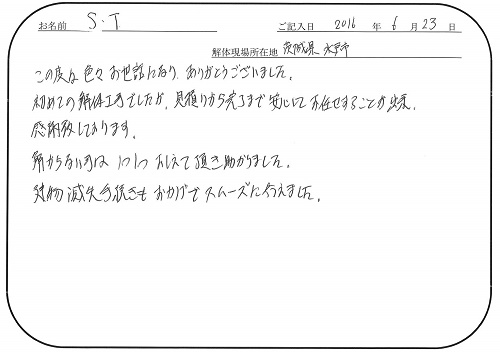 お名前 S.T ご記入日 2016 年 6 月 23 日
解体現場所在地 茨城県 水戸市
この度は色々お世話になり、ありがとうございました。
初めての解体工事でしたが、見積りから完了まで安心してお任せすることが出来、
感謝致しております。
解からない事は 1つ1つ おしえて頂き助かりました。
建物滅失手続きも おかげで スムーズに行えました。